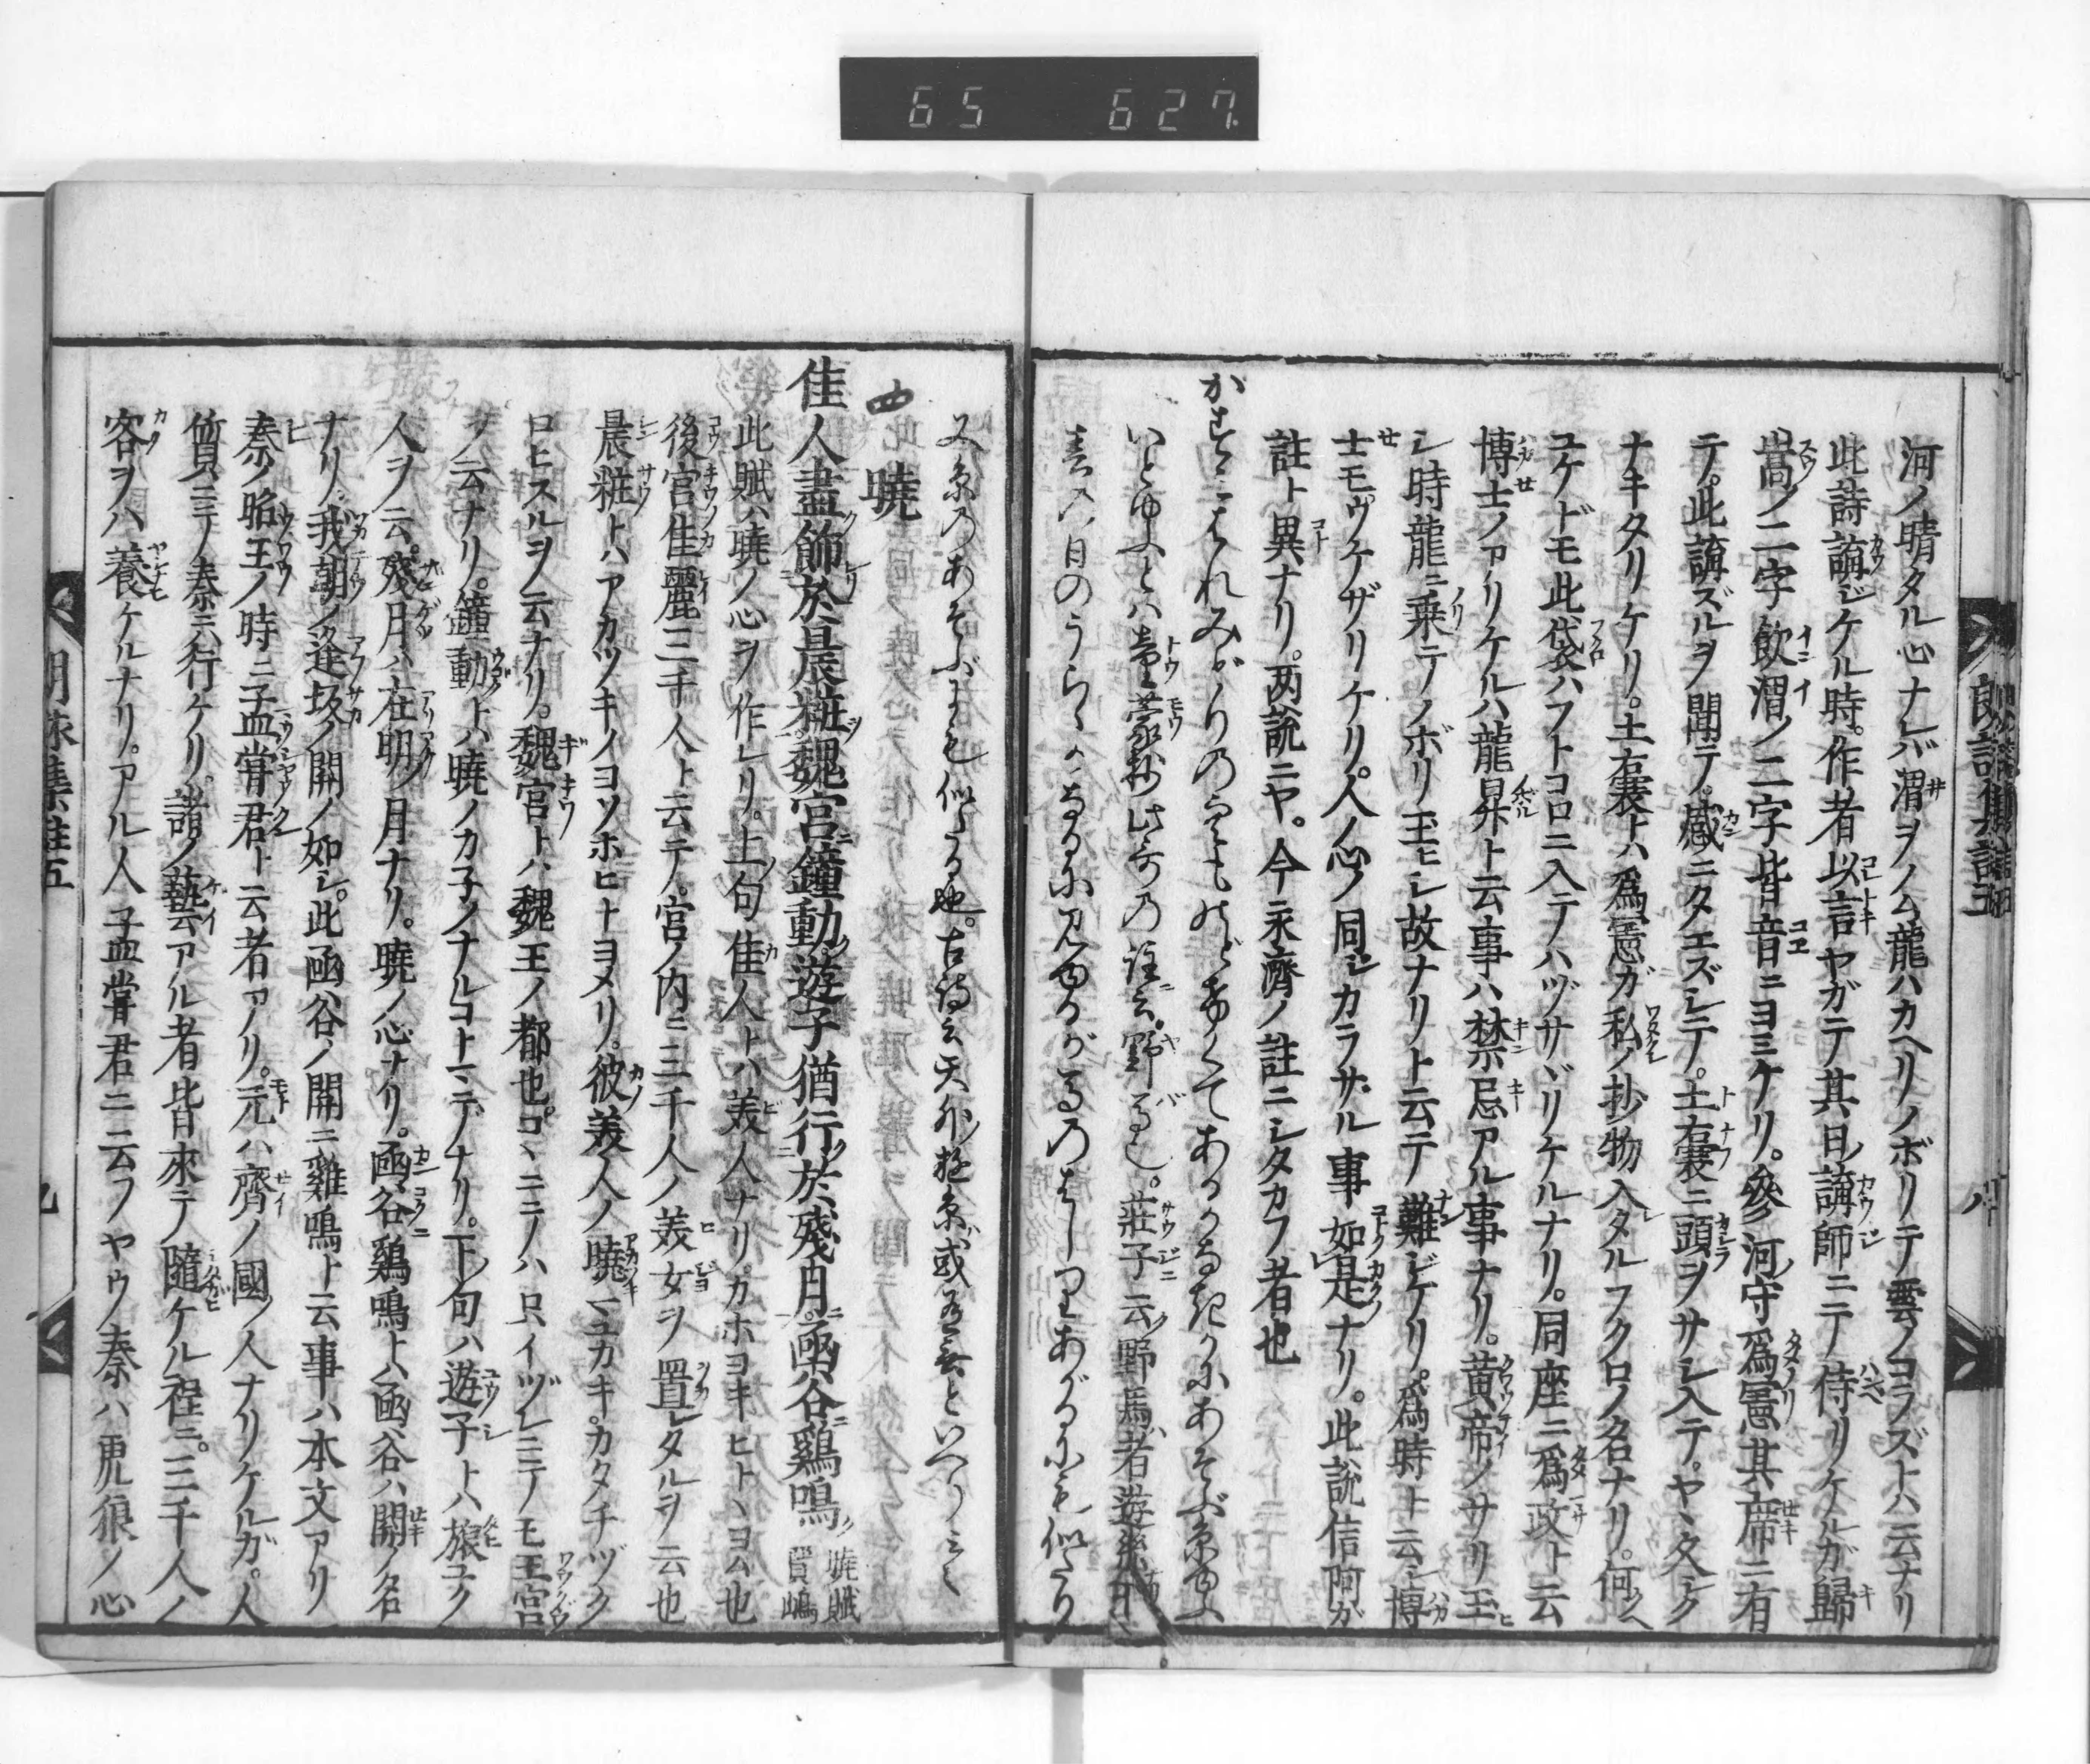 65 627
河ノ晴タル心ナレバ渭ヲノム龍ハカヘリノボリテ雲ノコラズトハ云ナリ
此詩講ジケル時。作者以言ヤガテ其日ノ講師ニテ侍リケルガ歸
嵩ノ二字飲渭ノ二字皆音ニヨミケリ。參河ノ守爲憲其席ニ有
テ。此講ズルヲ聞テ。感ニタエズシテ。土嚢ニ頭ヲサシ入テ。ヤヽ久シク
ナキタリケリ。土嚢トハ爲憲ガ私ノ抄物入タルフクロノ名ナリ。何クヘ
ユケドモ此袋ハフトコロニ入テハヅサヾリケルナリ。同座ニ爲政ト云
博士ノアリケルハ龍昇ト云事ハ禁忌アル事ナリ。黄帝ノサリ玉ヒ
シ時龍ニ乗テノボリ玉ヒシ故ナリト云テ難ジケリ。爲時ト云シ博
士モウケザリケリ。人ノ心ノ同ジカラザル事如是ナリ。此説信阿ガ
註ト異ナリ。两説ニヤ。今永濟ノ註ニシタカフ者也
かすみはれみどりの空ものどけくてあるかなきかにあそぶ糸ゆふ
いとゆふとは童蒙抄此哥の註云。野馬也。莊子云野馬者遊糸
春の日のうらゝかなるに
又糸のあそぶよも似たる也。古詩云天外遊糸或有無といへり
曉
佳人盡飾於晨粧魏宮鐘動遊子猶行於殘月。函谷鷄鳴 曉賦 賈嶋
此賦ハ曉ノ心ヲ作レリ。上ノ句佳人トハ美人ナリカホヨキヒトヽヨム也
後宮佳麗三千人ト云テ。宮ノ内ニ三千人ノ美女ヲ置レタルヲ云也
晨粧トハアカツキノヨソホヒトヨメリ。彼美人ノ曉マユカキ。カタチヅク
ロヒスルヲノ云ナリ。魏宮トハ魏王ノ都也。コヽニテノハ只イヅレニテモ王宮
ヲ云ナリ。鐘動トハ曉ノカ子ノナルコトニテナリ。下ノ句ハ遊子トハ旅ユク
人ヲノ云。殘月ハ在明ノ月ナリ。曉ノ心ナリ。函谷鷄鳴トハ函谷ハ關ノ名
ナリ。我朝ノ逢坂ノ關ノ如シ。此函谷ノ關ニ雞鳴ト云事ハ本文アリ
秦ノ昭王ノ時ニ孟嘗君ト云者アリ。元ハ齊ノ國ノ人ナリケルガ。人
質ニテノ秦ニ行ケリ。諸ノ藝アル者皆來テ隨ケル程ニ。三千人ノ
客ヲハ養ケルナリ。アル人孟嘗君ニ云フヤウ秦ハ虎狼ノ心
朗詠集註五
八
九